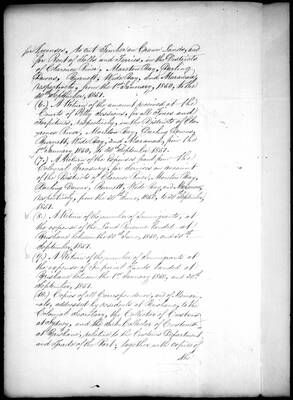 for Licenses, to cut Timber on Crown Lands, and
for Rent of Tolls and Ferries, in the Districts
of Clarence River, Moreton Bay, Darling
Downs, Burnett, Wide Bay, and Maranoa,
respectively, from the 1st January, 1860, to the
30 September, 1851.
(6.) A Return of the amount received at the
Courts of Petty Sessions, for all Fines and
Forfeitures, respectively, in the Districts of Cla-
rence River, Moreton Bay, Darling Downs,
Burnett, Wide Bay, and Maranoa, from the 1st
January 1860, to 30th September, 1851.
(7.) A Return of the Expenses paid from the
Colonial Treasury, for Services on account
of the Districts of Clarence River, Moreton Bay,
Darling Downs, Burnett, Wide Bay, and Maranoa,
respectively, from the 30th June, to 30 September,
1851.
(8.) A Return of the number of Immigrants, at
the expense of the Land Revenue landed at
Brisbane between the 30th June, and 30th
September, 1851.
(9.) A Return of the number of Immigrants at
the expense of Imperial Funds landed at
Brisbane between the 1st January and 30th
September, 1851.
(10.) Copies of all Correspondence, and of Memor-
ials, addressed by residents at Brisbane, to the
Colonial Secretary, the Collector of Customs
at Sydney, and the Sub-Collector of Customs
at Brisbane, relative to the Customs Department
and Goods of the Port; together with copies of
the